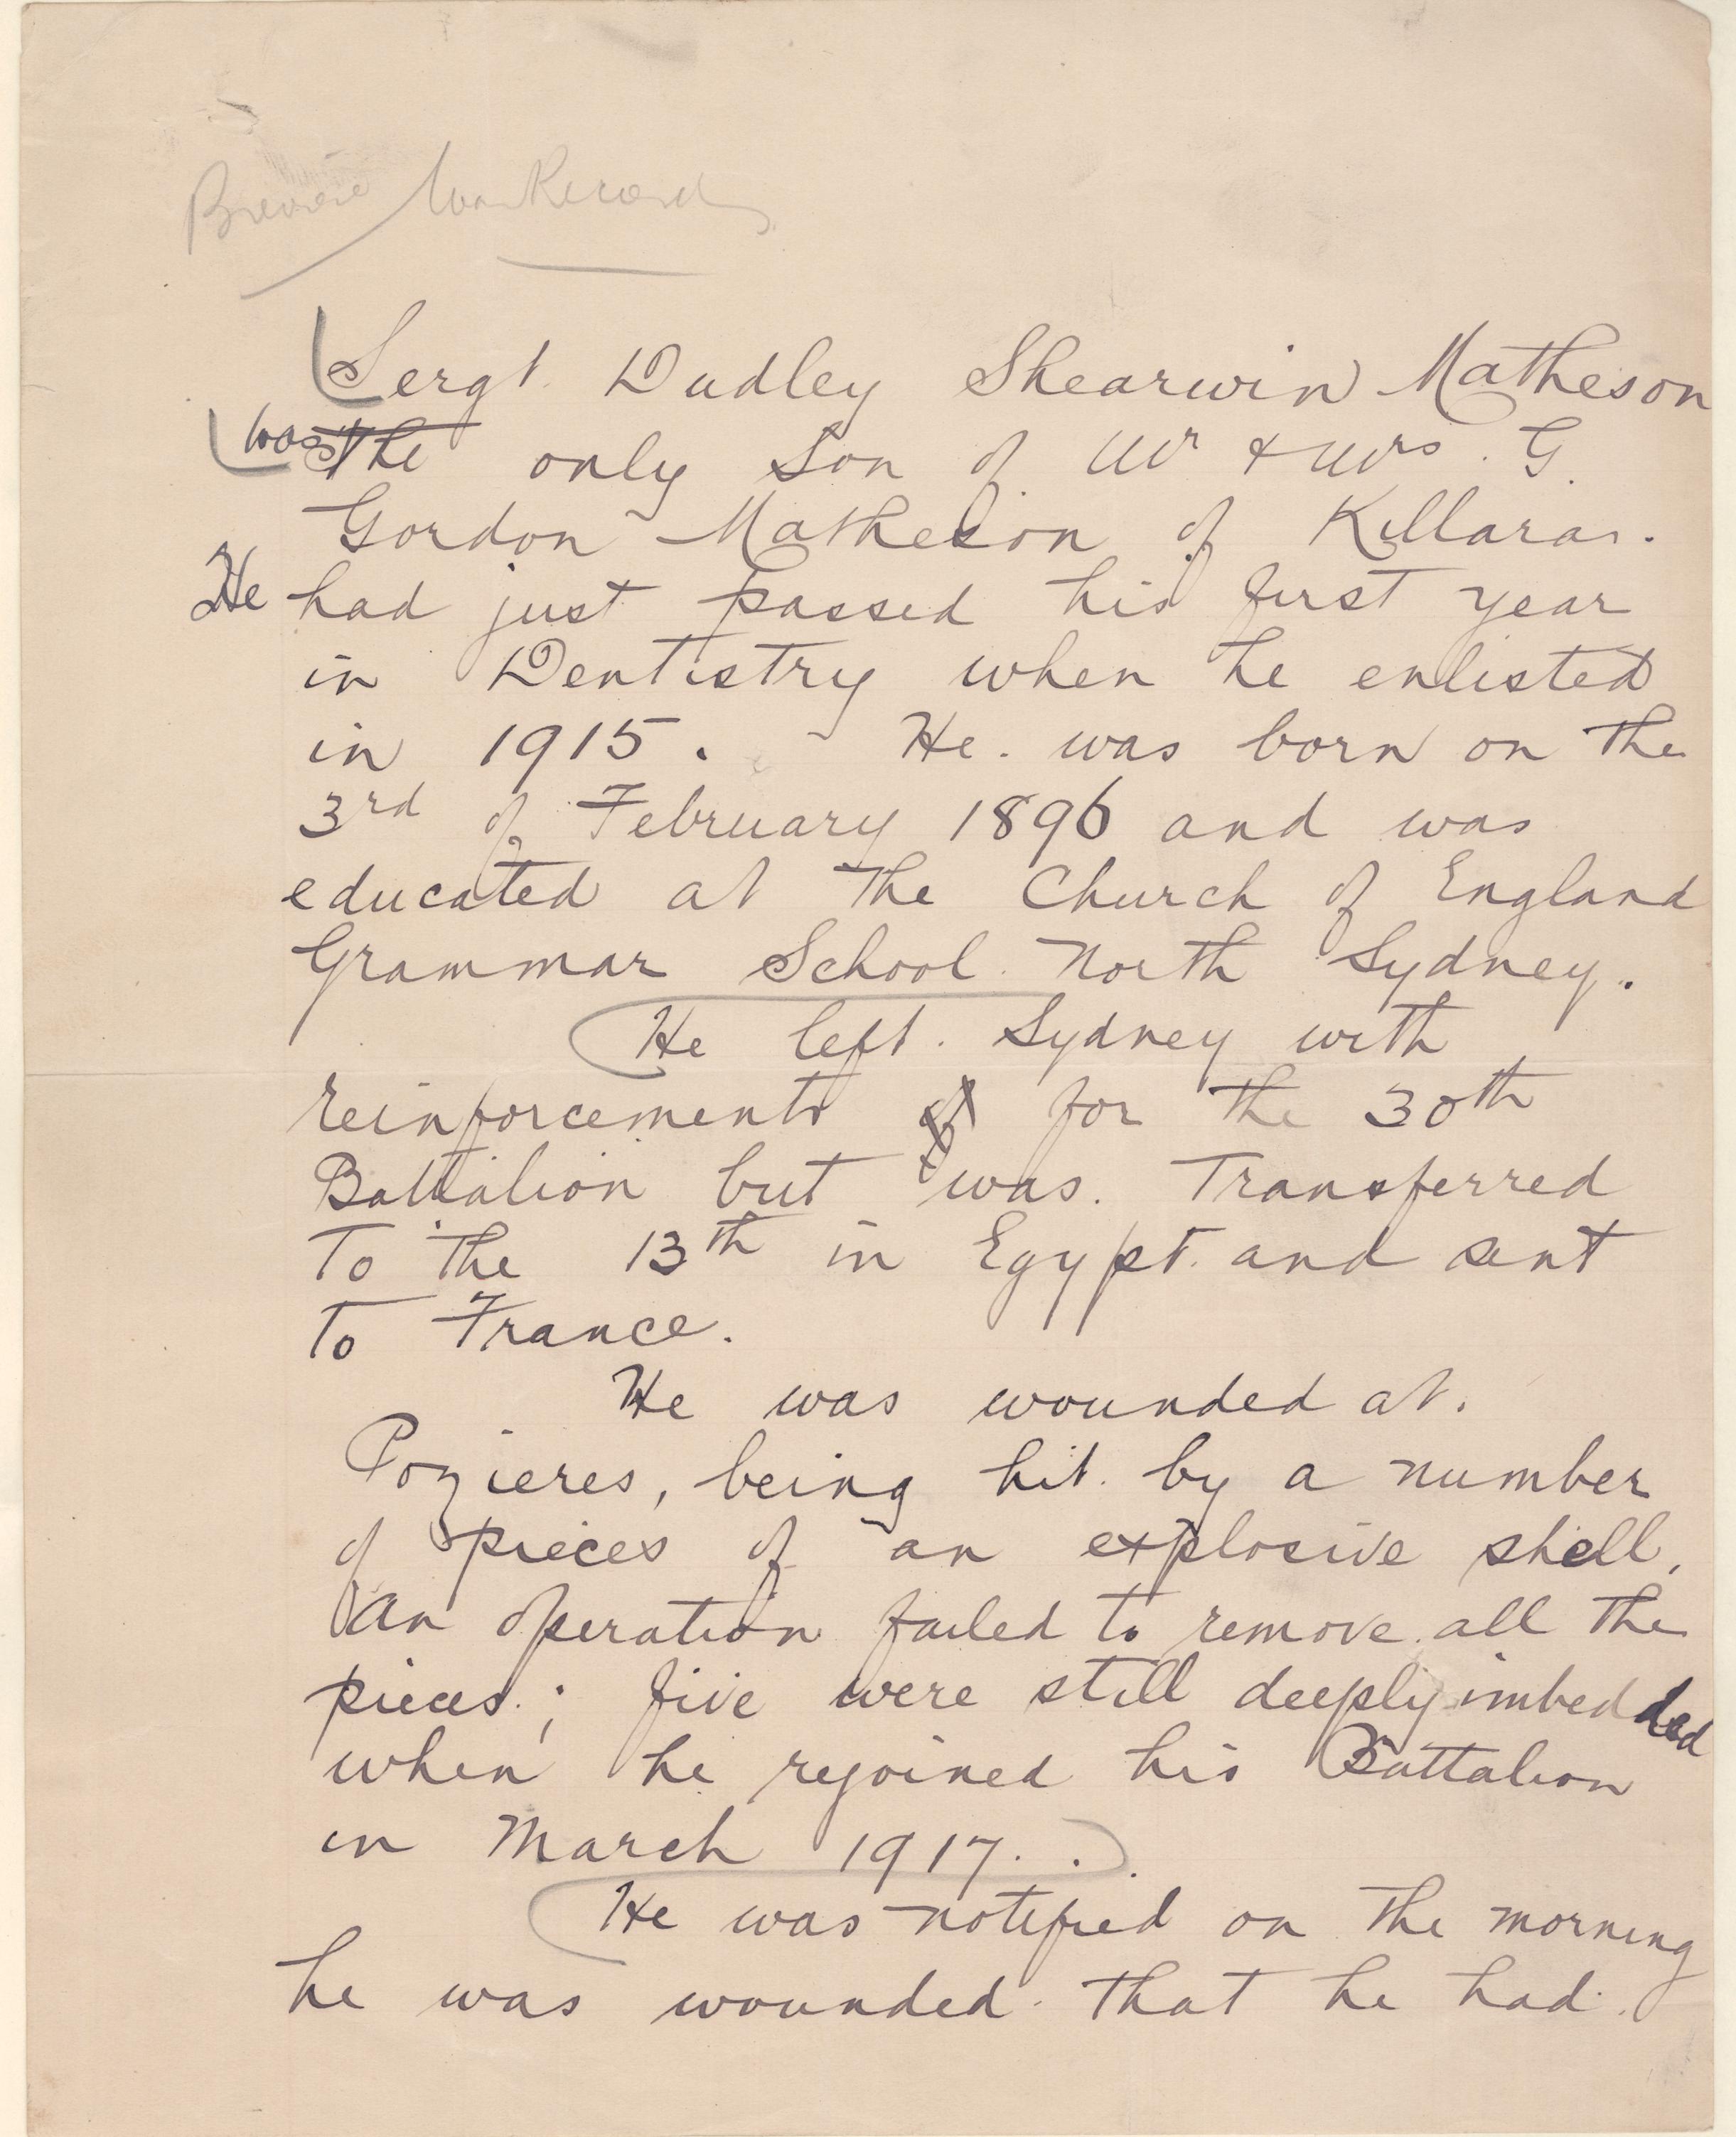 War Records
Sergt. Dudley Shearwin Matheson
was the only Son of Mr & Mrs. G.
Gordon Matheson of Killara.
He had just passed his first year
in Dentistry when he enlisted
in 1915. He was born on the
3rd of February 1896 and was
educated at the Church of England
Grammar School North Sydney.
He left Sydney with
reinforcements for the 30th
Battalion but was. Transferred
To the 13th in Egypt. and sent
To France.
He was wounded at.
Pozieres, being hit. by a number
of pieces of an explosive shell.
An operation failed to remove all the
pieces; five were still deeply imbedded
when he rejoined his Battalion
in March 1917.
He was notified on the morning
he was wounded that he had.